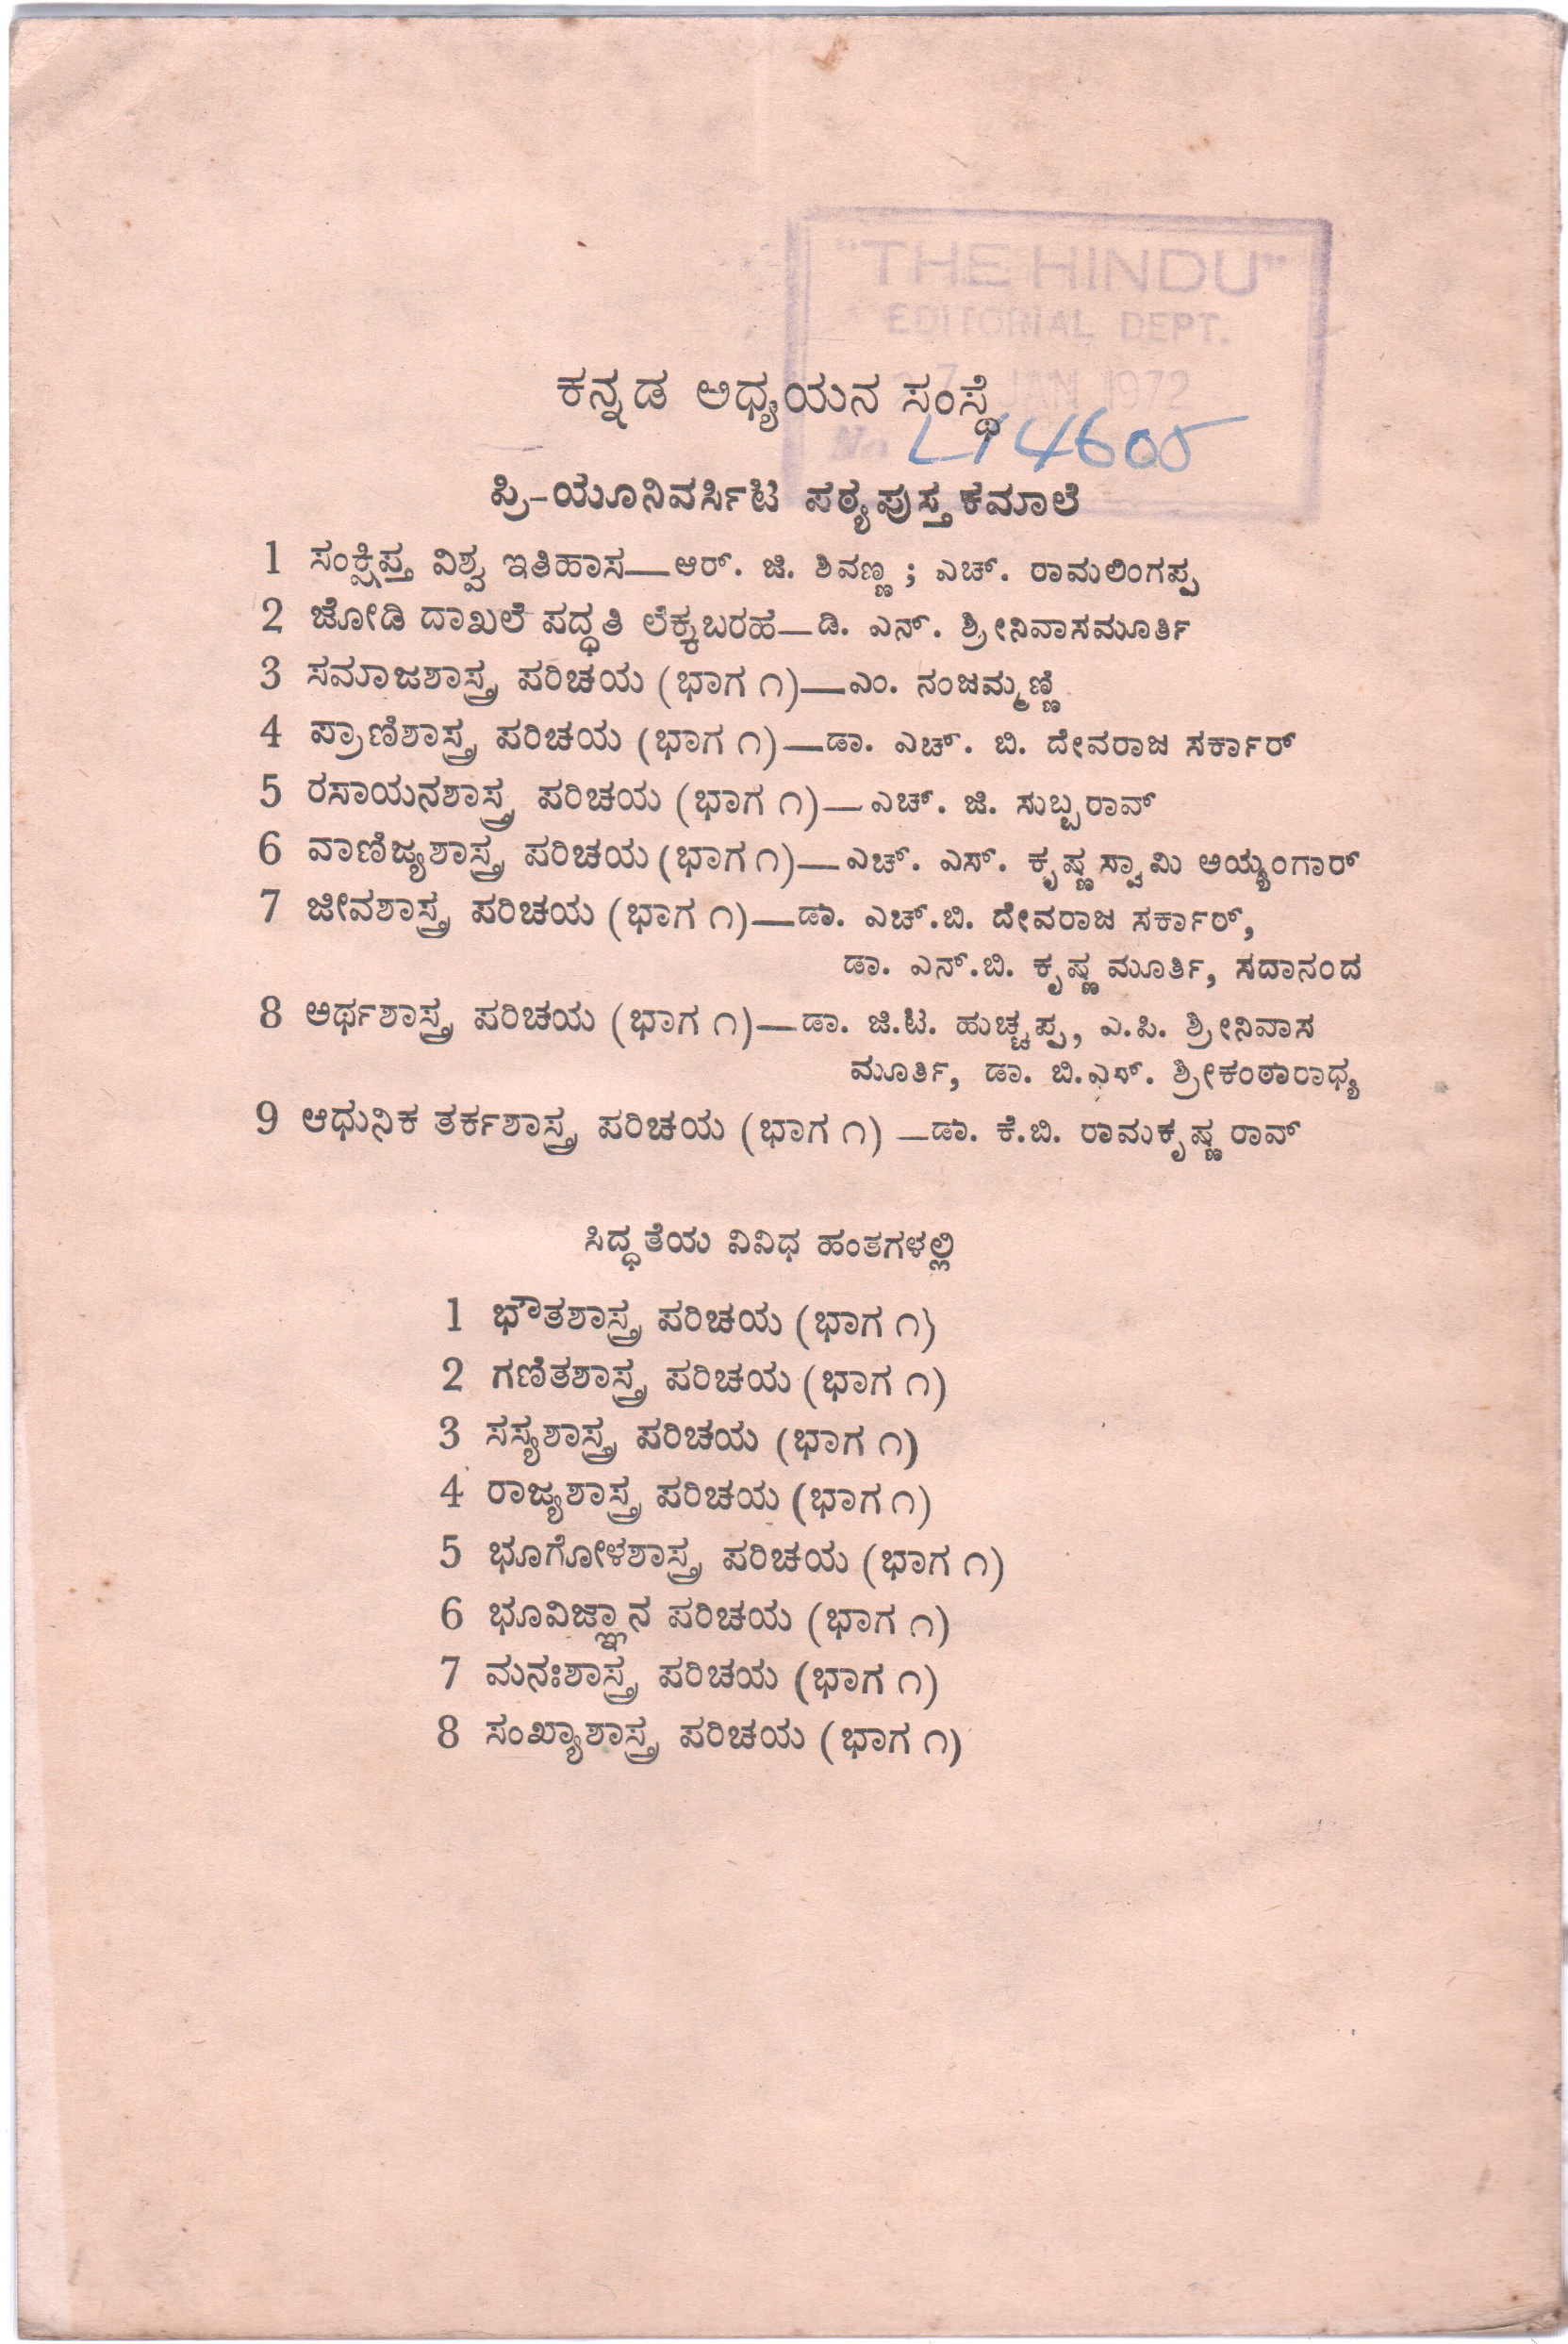 "THE HINDU"
EDITORIAL DEPT.
7 JAN 1972
ಕನ್ನಡ ಅಧ್ಯಯನ ಸಂಸ್ಥೆ
No. L14605
ಪ್ರಿ-ಯೂನಿವರ್ಸಿಟಿ ಪಠ್ಯಪುಸ್ತಕಮಾಲೆ
1 ಸಂಕ್ಷಿಪ್ತ ವಿಶ್ವ ಇತಿಹಾಸ—ಆರ್. ಜಿ. ಶಿವಣ್ಣ ; ಎಚ್. ರಾಮಲಿಂಗಪ್ಪ
2 ಜೋಡಿ ದಾಖಲೆ ಪದ್ಧತಿ ಲೆಕ್ಕಬರಹ—ಡಿ. ಎನ್. ಶ್ರೀನಿವಾಸಮೂರ್ತಿ
3 ಸಮಾಜಶಾಸ್ತ್ರ ಪರಿಚಯ (ಭಾಗ ೧)—ಎಂ. ನಂಜಮ್ಮಣ್ಣಿ
4 ಪ್ರಾಣಿಶಾಸ್ತ್ರ ಪರಿಚಯ (ಭಾಗ ೧)—ಡಾ. ಎಚ್. ಬಿ. ದೇವರಾಜ ಸರ್ಕಾರ್
5 ರಸಾಯನಶಾಸ್ತ್ರ ಪರಿಚಯ (ಭಾಗ ೧)—ಎಚ್. ಜಿ. ಸುಬ್ಬರಾವ್
6 ವಾಣಿಜ್ಯಶಾಸ್ತ್ರ ಪರಿಚಯ (ಭಾಗ ೧)—ಎಚ್. ಎಸ್. ಕೃಷ್ಣಸ್ವಾಮಿ ಅಯ್ಯಂಗಾರ್
7 ಜೀವಶಾಸ್ತ್ರ ಪರಿಚಯ (ಭಾಗ ೧)—ಡಾ. ಎಚ್.ಬಿ. ದೇವರಾಜ ಸರ್ಕಾರ್,
ಡಾ. ಎನ್.ಬಿ. ಕೃಷ್ಣಮೂರ್ತಿ, ಸದಾನಂದ
8 ಅರ್ಥಶಾಸ್ತ್ರ ಪರಿಚಯ (ಭಾಗ ೧)—ಡಾ. ಜಿ.ಟಿ. ಹುಚ್ಚಪ್ಪ, ಎ.ಪಿ. ಶ್ರೀನಿವಾಸ
ಮೂರ್ತಿ, ಡಾ. ಬಿ.ಎಸ್. ಶ್ರೀಕಂಠಾರಾಧ್ಯ
9 ಆಧುನಿಕ ತರ್ಕಶಾಸ್ತ್ರ ಪರಿಚಯ (ಭಾಗ ೧) —ಡಾ. ಕೆ.ಬಿ. ರಾಮಕೃಷ್ಣರಾವ್
ಸಿದ್ಧತೆಯ ವಿವಿಧ ಹಂತಗಳಲ್ಲಿ
1 ಭೌತಶಾಸ್ತ್ರ ಪರಿಚಯ (ಭಾಗ ೧)
2 ಗಣಿತಶಾಸ್ತ್ರ ಪರಿಚಯ (ಭಾಗ ೧)
3 ಸಸ್ಯಶಾಸ್ತ್ರ ಪರಿಚಯ (ಭಾಗ ೧)
4 ರಾಜ್ಯಶಾಸ್ತ್ರ ಪರಿಚಯ (ಭಾಗ ೧)
5 ಭೂಗೋಳಶಾಸ್ತ್ರ ಪರಿಚಯ (ಭಾಗ ೧)
6 ಭೂವಿಜ್ಞಾನ ಪರಿಚಯ (ಭಾಗ ೧)
7 ಮನಃಶಾಸ್ತ್ರ ಪರಿಚಯ (ಭಾಗ ೧)
8 ಸಂಖ್ಯಾಶಾಸ್ತ್ರ ಪರಿಚಯ (ಭಾಗ ೧)